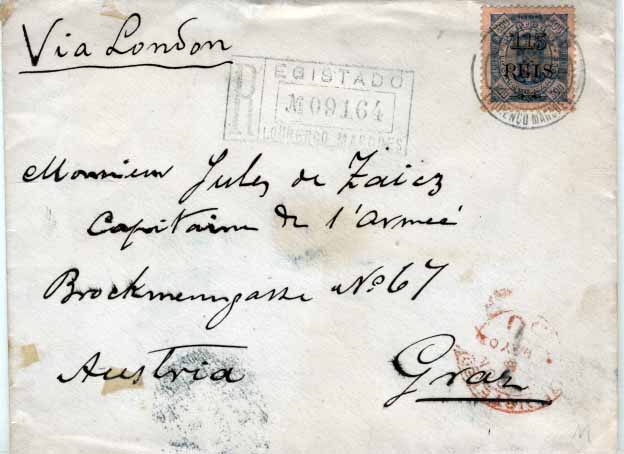 Via London
115
REIS
LOURENÇO MARQUES
R
REGISTADO
No 09164
LOURENÇO MARQUES
Monsieur Jules de Zaicz
Capitaine de l'Armée
Brockmanngasse No 67
Austria Graz